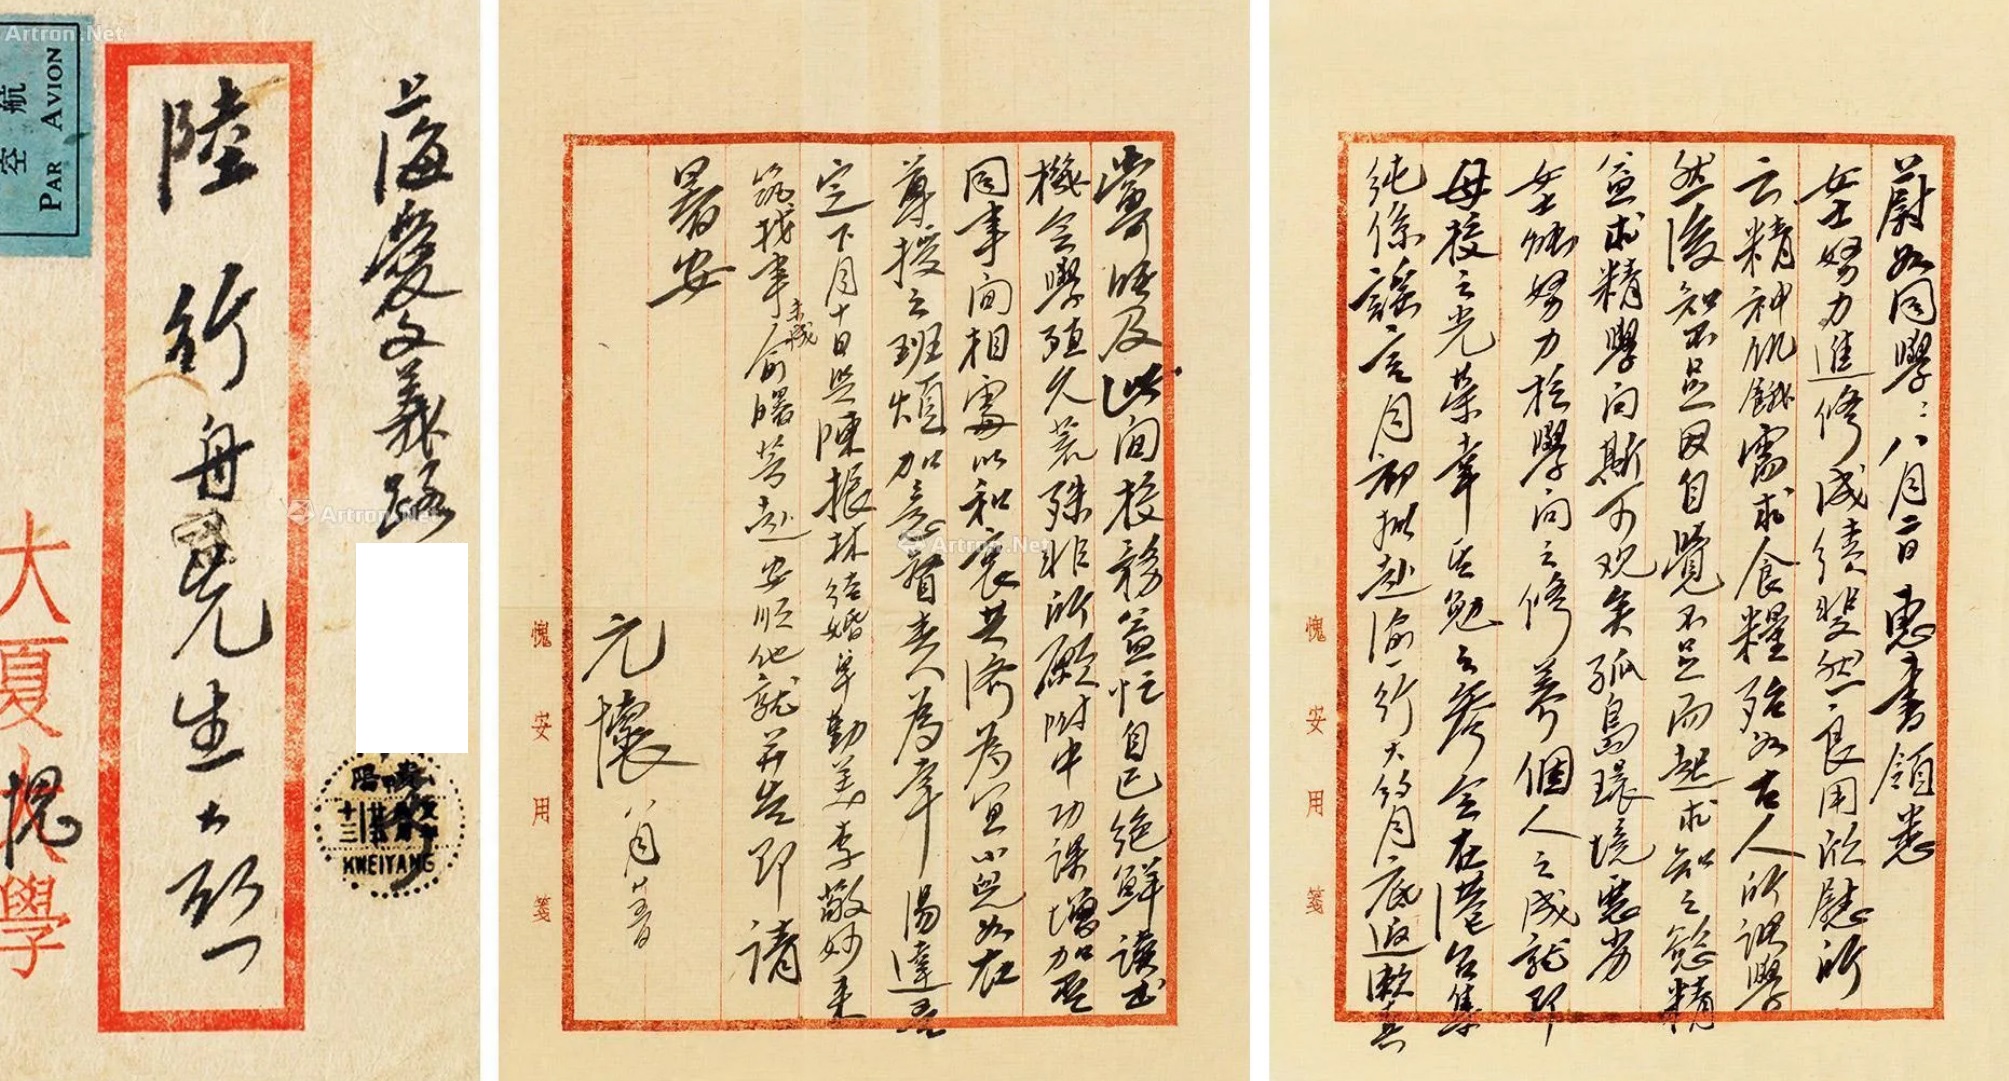 蔚如同學：八月二日惠書領悉
女士努力進修成績斐然一良用欣慰所
云精神飢餓需求食糧殆如古人所謂學
然後知不足因自覺不足而起求知之慾精
益求精學問斯可观矣孤島環境惡劣
女士能努力於學問之修養個人之成就即
母校之光榮幸益勉之參會在港召集
純係謠言月初拟赴渝一行大約月底返漱
當可晤及此間校務益忙自己絕鮮讀書
機會學殖久荒殊非所願附中功課增加
同事间相處以和衷共濟為宜小兒如在
尊授之班煩加意督責為幸湯達
定下月十日與陳振林結婚牟勤美李敬妙来
筑找事未成俞曙芳赴安順他就并告即請
暑安
元懷
八月廿五日
愧安用箋
愧安用箋
上海愛文義路
陸蔚舟先生大啟
大夏大學
愧
航空
PAR AVION
KWEIYANG
Artron.Net
Artron.Net
Artron.Net